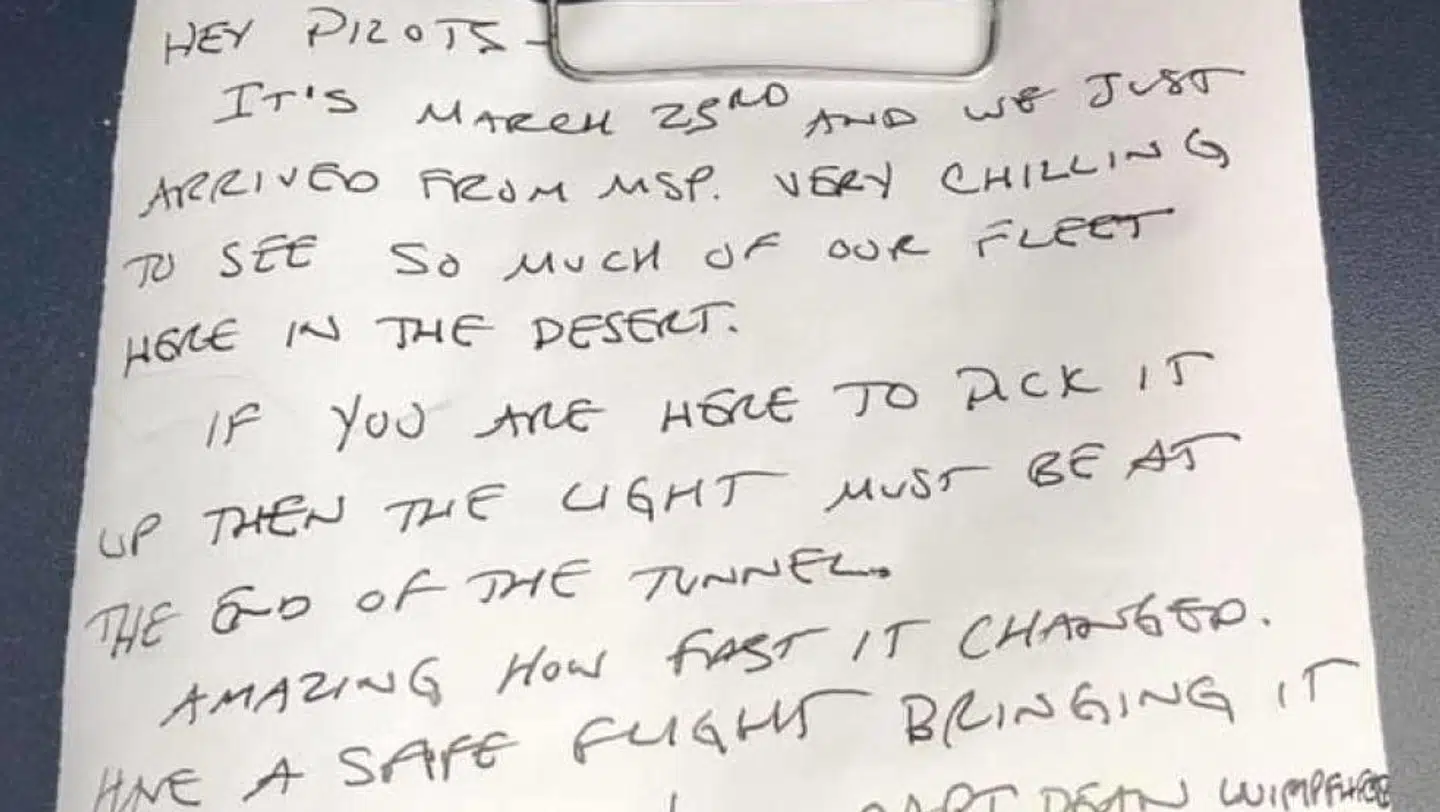 HEY PILOTS -
IT'S MARCH 23RD AND WE JUST
ARRIVED FROM MSP. VERY CHILLING
TO SEE SO MUCH OF OUR FLEET
HERE IN THE DESERT.
IF YOU ARE HERE TO PICK IT
UP THEN THE LIGHT MUST BE AT
THE END OF THE TUNNEL.
AMAZING HOW FAST IT CHANGED.
HAVE A SAFE FLIGHT BRINGING IT
CAPT DEAN